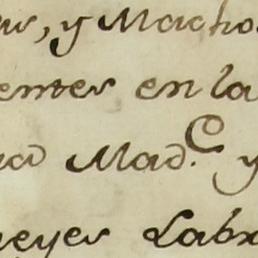 , y Macho
entes en la
Mad.e y
reyes Labr